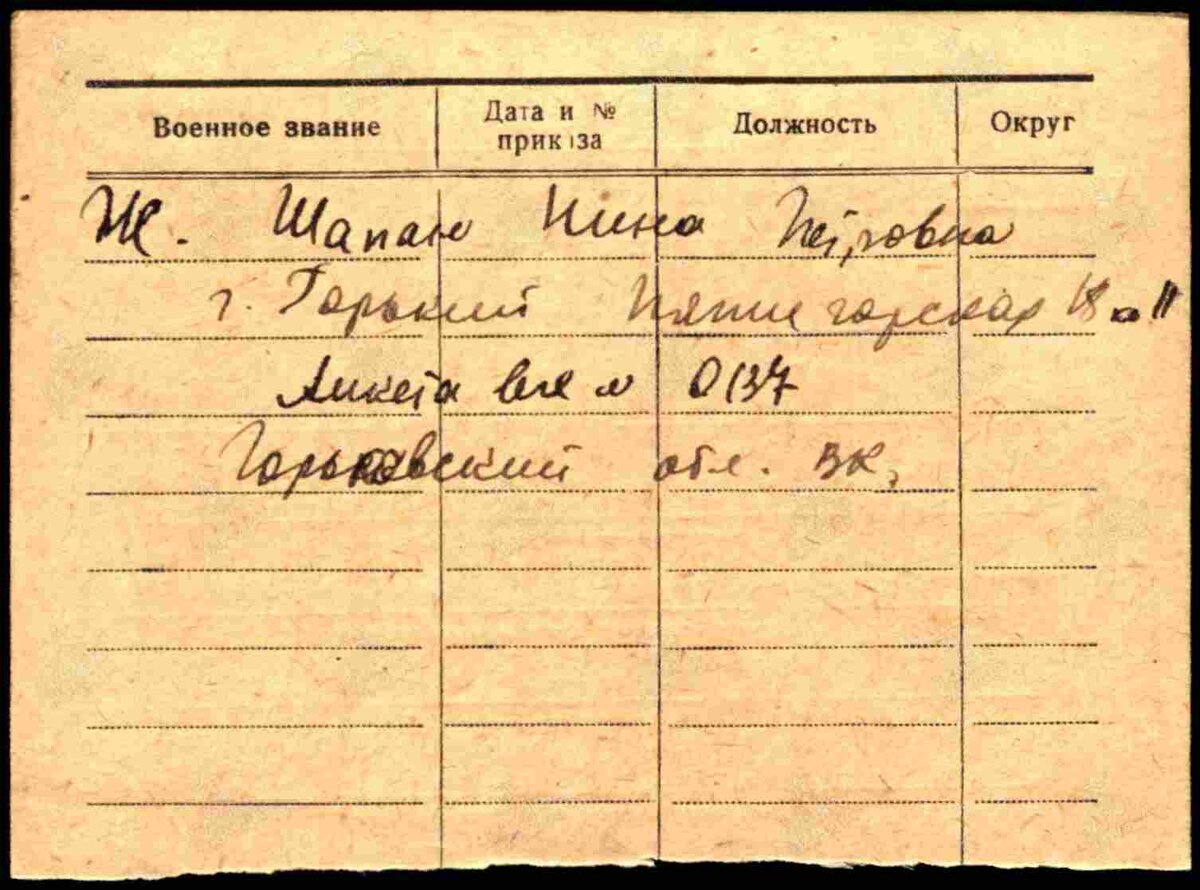 Военное звание
Дата и №
приказа
Должность
Округ
Ж. Нина Петровна
г. Горький Пятигорская 18
Анкета 0137
Горьковский обл. ВК,